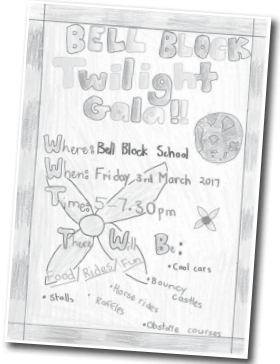 BELL BLOCK
Twilight
Gala!!
Where: Bell Block School
When: Friday 3rd March 2017
Time: 5-7.30pm
There Will Be:
Food/Rides/Fun
• Cool cars
• Bouncy castles
• Horse rides
• Stalls
• Raffles
• Obstacle courses